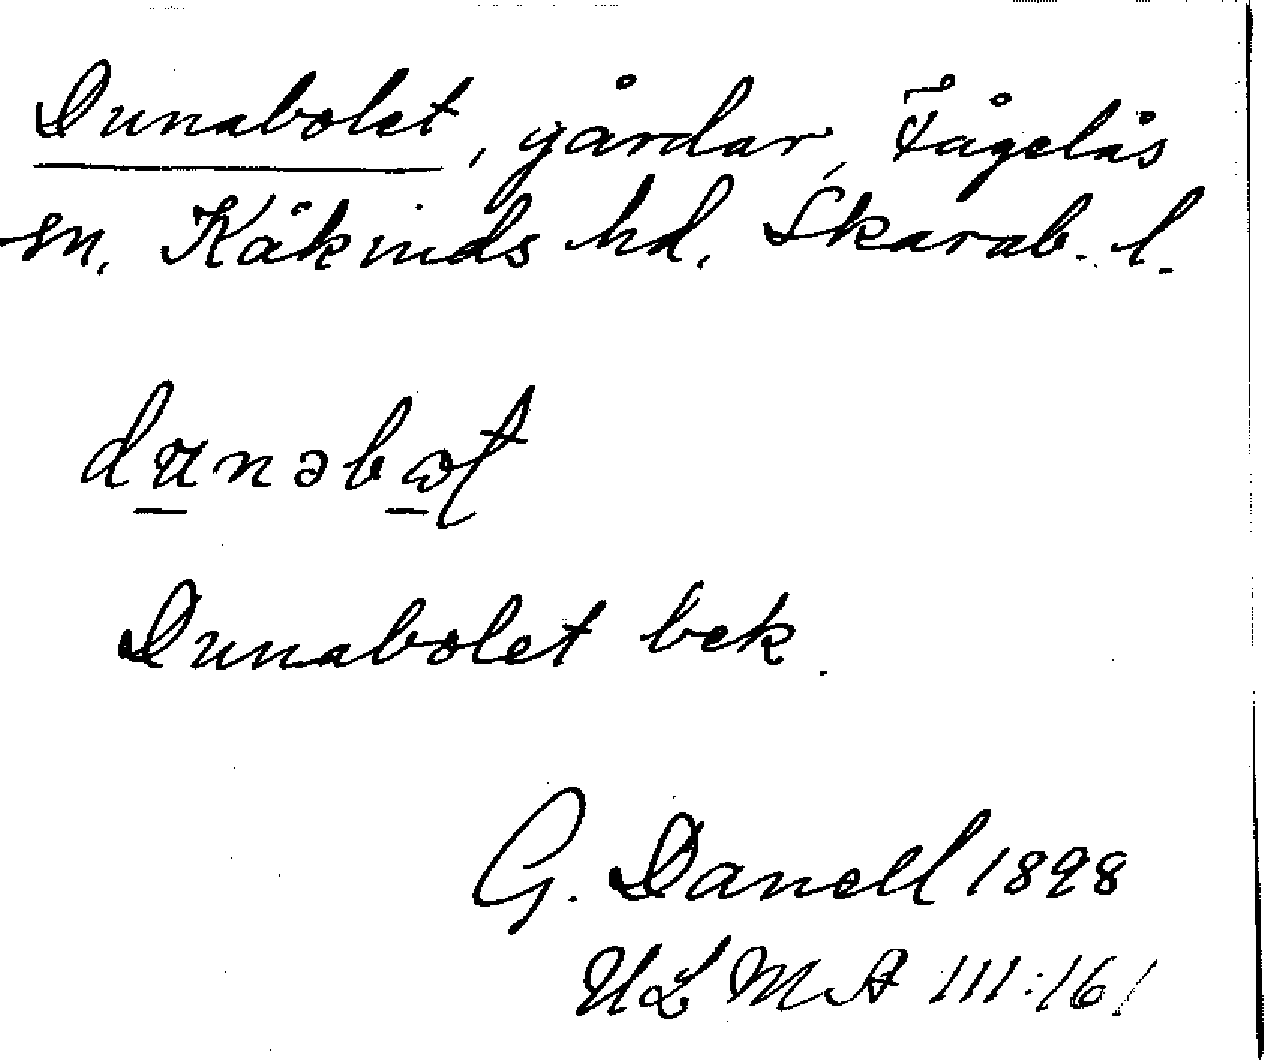 Dunabolet, gårdar, Fågelås
sn. Kåkinds hd. Skarab. l.
dunəbωt
Dunabolet bek.
G. Danell 1898
ULMA 111:161